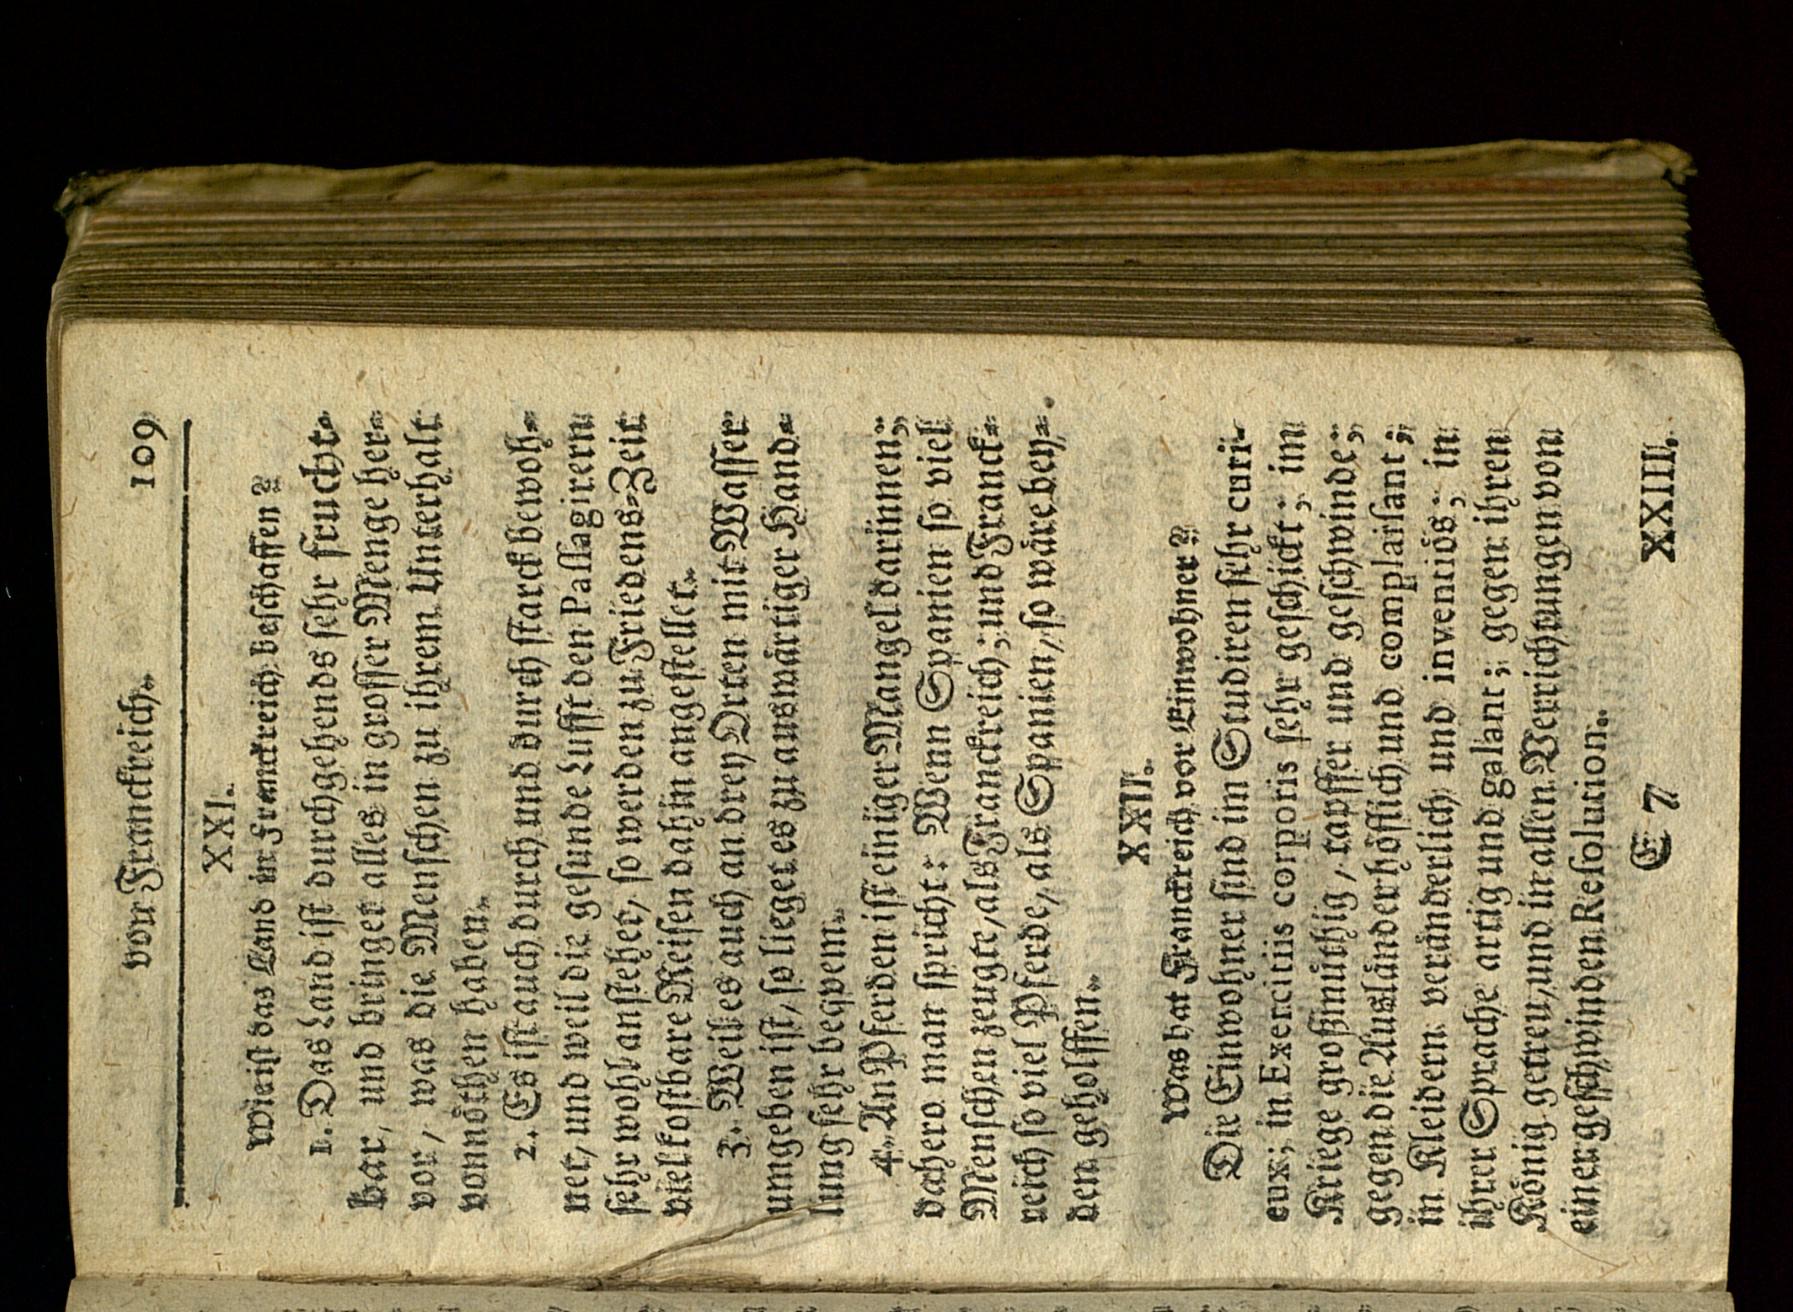 von Franckreich. 109
XXI.
Wie ist das Land in Franckreich beschaffen?
1. Das Land ist durchgehends sehr frucht-
bar, und bringet alles in grosser Menge her-
vor, was die Menschen zu ihrem Unterhalt
vonnöthen haben.
2. Es ist auch durch und durch starck bewoh-
net, und weil die gesunde Lufft den Passagirern
sehr wohl anstehet, so werden zu Friedens-Zeit
viel kostbare Reisen dahin angestellet.
3. Weil es auch an drey Orten mit Wasser
umgeben ist, so lieget es zu auswärtiger Hand-
lung sehr beqvem.
4. An Pferden ist einiger Mangel darinnen;
dahero man spricht: Wenn Spanien so viel
Menschen zeugte, als Franckreich; und Franck-
reich so viel Pferde, als Spanien, so wäre bey-
den geholffen.
XXII.
Was hat Franckreich vor Einwohner?
Die Einwohner sind im Studiren sehr curi-
eux; in Exercitiis corporis sehr geschickt; im
Kriege großmüthig, tapffer und geschwinde;
gegen die Ausländer höfflich und complaisant;
in Kleidern veränderlich und inventiös; in
ihrer Sprache artig und galant; gegen ihren
König getreu, und in allen Verrichtungen von
einer geschwinden Resolution.
E 7 XXIII.